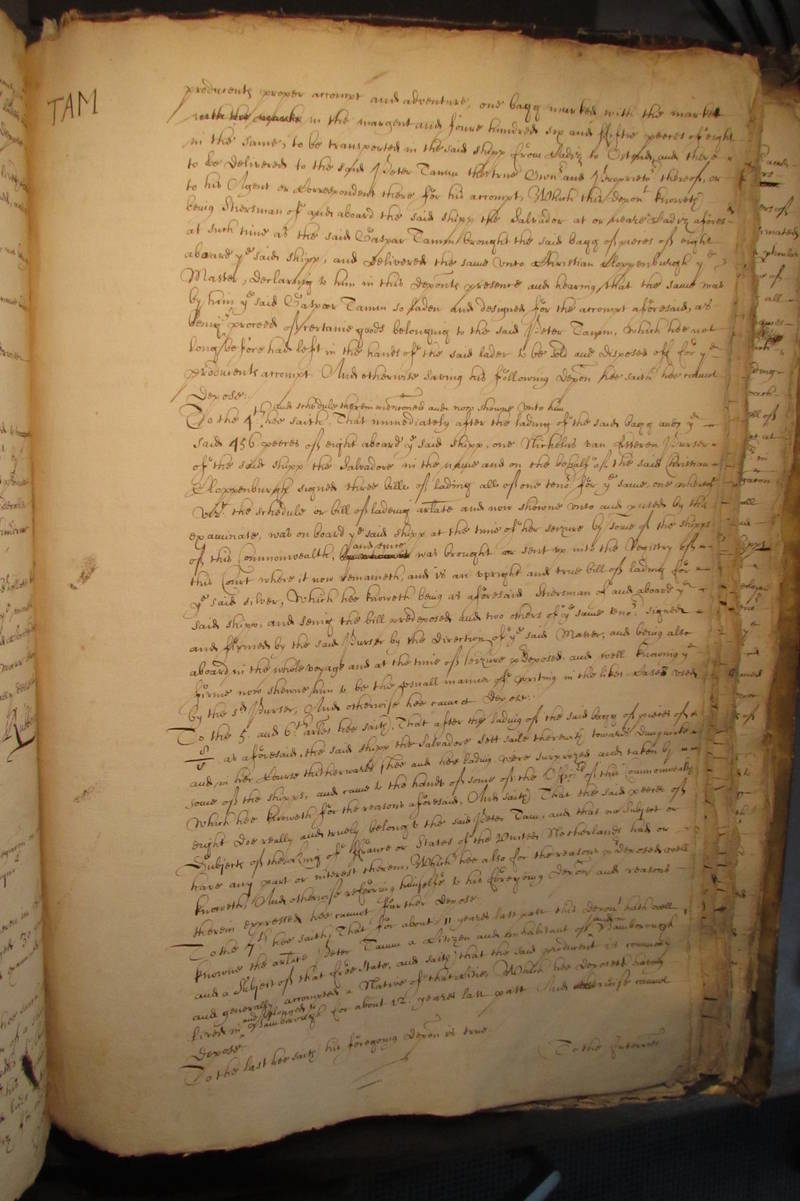 TAM
producents proper accompt and adventure, one bagg marked with the marke
in the margent and foure hundred six and fiftie peeces of eight
in the same, to be transported in the said shipp from Cadiz to Ostend, and there
to be delivered to the said Peter Tamm the true Owner and Proprietor thereof, or
to his Agent or Correspondent there for his accompt, Which this depont knoweth
being Stiersman of and aboard the said shipp the Salvador at or neare Cadiz afores
at such time as the said Caspar Tamm brought the said bagg of peeces of eight
aboard ye said shipp, and delivered the same unto Christian Cloppenburgh ye
Master, declaring to him in this deponts presence and hearing, that the same was
by him ye said Caspar Tamm so laden and designed for the accompt aforesaid, as
being ye proceed of certaine goods belonging to the said Peter Tamm, which hee not
long before had left in the hands of the said lader to be sold and disposed of for ye
producents accompt And otherwise saving his following depon hee saith hee cannot
depose.
and schedule therein mentioned and now showne unto him
To the 4th hee saith, That immediately after the lading of the said bagg and ye
said 456 peeces of eight aboard ye said shipp, one Nicholas van Purser
of the said shipp the Salvadore in the name and on the behalf of the said Christian
Cloppenburgh signed three bills of lading all of one teno for ye same, one whereof
the schedule or bill of lading arlate and now showne unto and perused by this
examinate, was on board ye said shipp at the time of her seizure by some of the shipps
of this Commonwealth, and since was brought or sent up into the Registry of
this Court where it now remaineth, and is an upright and true bill of lading for
ye said silver, Which hee knoweth being as aforesaid Stiersman of and aboard ye
said shipp, and seeing the bill predeposed and two others of ye same teno signed
and firmed by the said Purser by the direction of ye said Master, and being also
aboard in the whole voyage and at the time of seizure predeposed and well knowing ye
firme now shewne him to be the usuall manner of writing in the like cases used
by the sd Purser, And otherwise hee cannot depose.
To the 5 and 6th arles hee saith, That after the lading of the said bagg of peeces of
8 as aforesaid, the said shipp the Salvadore sett saile therewith towards Dunquirke
and in her course thitherwards shee and her lading were surprized and taken by
some of the shipps, and came to the hands of some of the Offrs of this Commonwealth
Which hee knoweth for the reasons aforesaid, And saith That the said peeces of
eight doe really and truely belong to the said Peter Tam, and that no Subject or
Subjects of the King of France or States of the United Netherlands had or
have any part or interest therein, Which hee also for the reasons predeposed well
knoweth, And otherwise referring himselfe to his foregoing depon and reasons
therein expressed hee cannot further depose.
To the 7th hee saith, That for about 11 yeares last past this depont hath well
knowne the arlate Peter Tamm a Citizen and Inhabitant of Hamborough
and a Subject of that free State, and saith that the said producent is commonly
and generally accompted a Native of that Cittie, Which hee deposeth having
lived in and belonged to Hamborough for about 12 yeares last past And otherwise cannot
depose.
To the last hee saith his foregoing depon is true
To the Interries